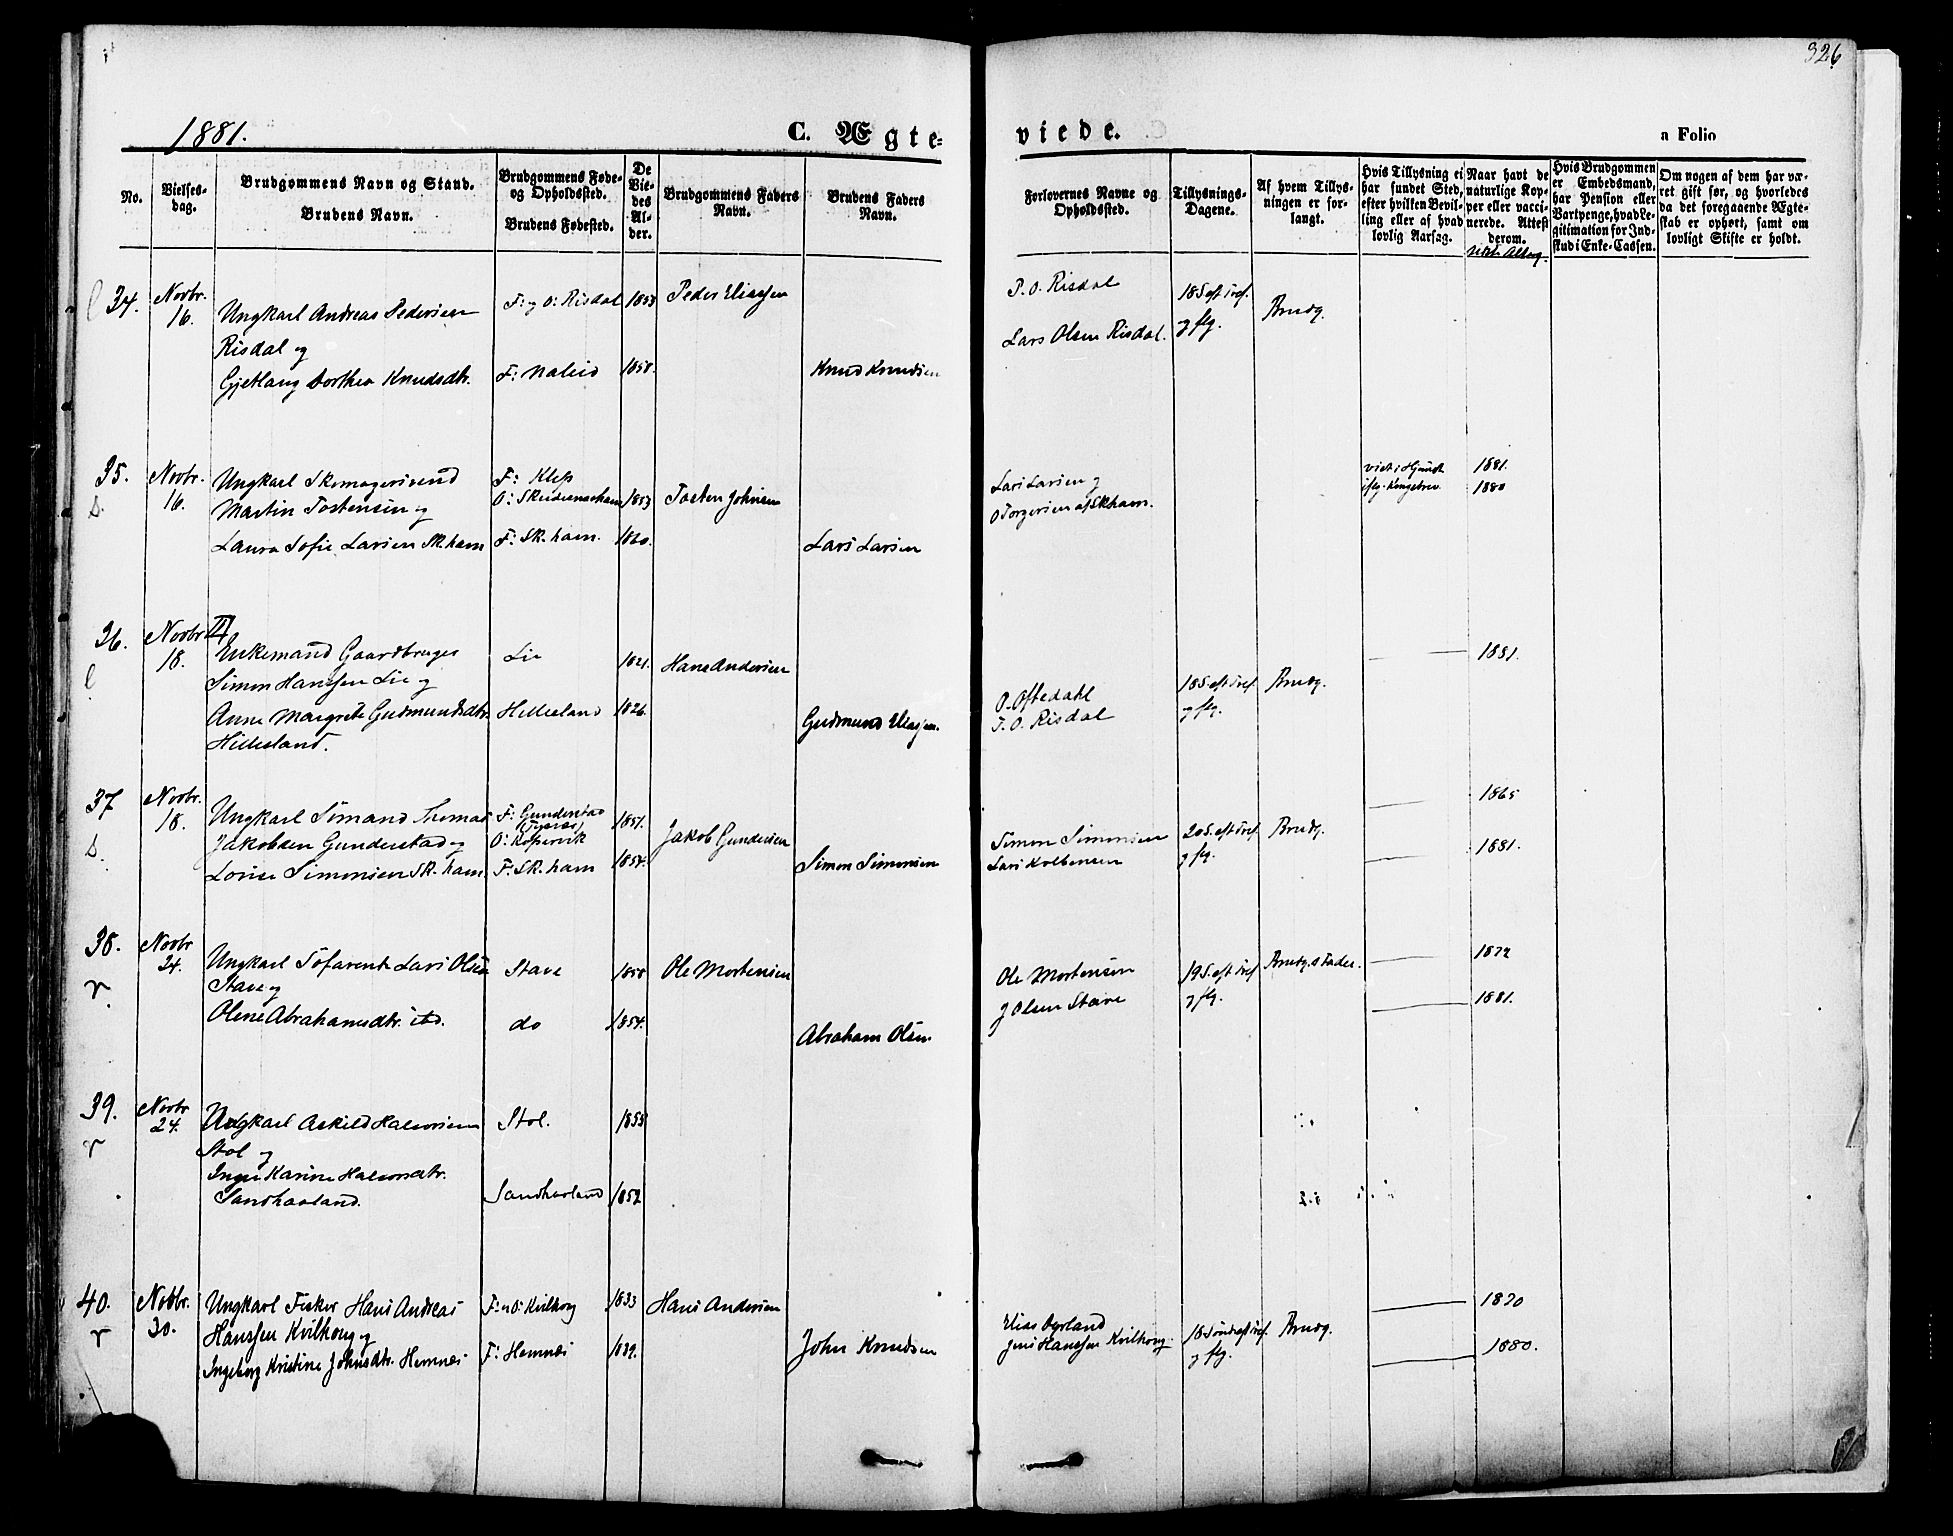 326
1881.
C. Ægte-
viede.
a Folio
No.
Vielses-
dag.
Brudgommens Navn og Stand.
Brudens Navn.
Brudgommens Føde-
og Opholdssted.
Brudens Fødested.
De
Vie-
des
Al-
der.
Brudgommens Faders
Navn.
Brudens Faders
Navn.
Forlovernes Navne og
Opholdssted.
Tillysnings-
Dagene.
Af hvem Tillys-
ningen er for-
langt.
Hvis Tillysning ei
har fundet Sted,
efter hvilken Bevil-
ling eller af hvad
lovlig Aarsag.
Naar havt de
naturlige Kop-
per eller vacci-
nerede. Attest
derom.
Hvis Brudgommen
er Embedsmand,
har Pension eller
Vartpenge, hvad Le-
gitimation for Ind-
skud i Enke-Cassen.
Om nogen af dem har væ-
ret gift før, og hvorledes
da det foregaaende Ægte-
skab er ophørt, samt om
lovligt Skifte er holdt.
34.
Novbr.
16.
Ungkarl Andreas Pedersen
Risdal og
Gjetlaug Dorthea Knudsdtr.
F: og O: Risdal
F:
1858.
Peder Eliassen
Knud Knudsen
P. O. Risdal
Lars Olsen Risdal.
18 S eft Tref.
og flg.
Brudg.
35.
S.
Novbr.
16.
Ungkarl Skomagersvend
Martin Tostensen og
Laura Sofie Larsen Sk.ham
F: Klep
O: Skudesneshavn
F: Sk.ham.
1853
1860.
Tosten Johnsen
Lars Larsen
Lars Larsen og
O Torgersen af Skham.
iflg. Kongebrev.
1881.
1880
36.
l
Novbr
18.
Enkemand Gaardbruger
Simon Hanssen Lie og
Anne Margrete Gudmundsdtr.
Hillesland.
Lie
Hillesland
1821.
1826.
Hans Andersen
Gudmund Eliassen.
O. Oftedahl
T. O. Risdal
18 S. eft Tref
og flg.
Brudg.
1881.
37
S.
Novbr.
18.
Ungkarl Simand Thomas
Jakobsen Gunderstad og
Lovise Simonsen Sk. ham
F: Gunderstad
(Tysvær)
O: Kopervik
F: Sk. ham
1857.
1854.
Jakob Gundersen
Simon Simonsen
Simon Simonsen
Lars Kolbensen
20 S. eft Tref
og flg.
Brudg.
1865
1881.
38.
r
Novbr
24.
Ungkarl Søfarende Lars Olsen
Stave og
Olene Abrahamsdtr. std.
Stave
do
1858
1854.
Ole Mortensen
Abraham Olsen
Ole Mortensen
J Olsen Stave
19 S. eft Tref
og flg.
Brudg.s Fader.
1872
1881.
39.
r
Novbr
24.
Ungkarl Askild Halvorsen
Stol og
Inger Karine Halvorsdtr.
Sandhaaland.
Stol.
Sandhaaland
1855
1852
40.
r
Novbr.
30.
Ungkarl Fisker Hans Andreas
Hanssen Kvilhoug og
Ingeborg Kristine Johnsdtr. Hemnes
F: o O: Kvilhoug
F: Hemnes
1833
1839.
Hans Andersen
John Knudsen
Elias Dyrland
Jens Hanssen Kvilhoug.
18 Sønd eft Tref.
og flg.
Brudg.
1870
1880.